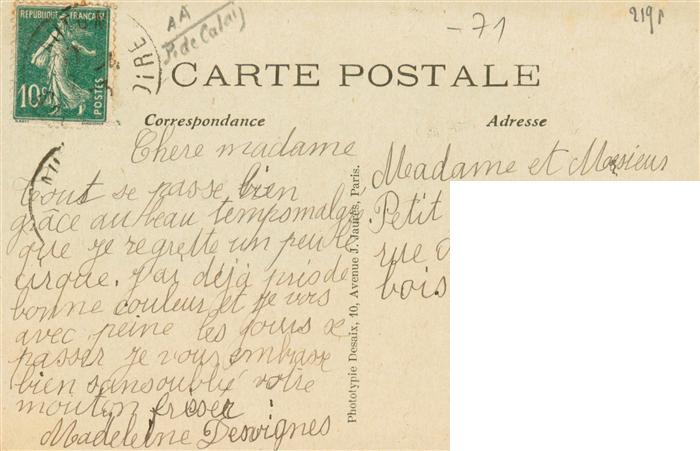 REPUBLIQUE FRANÇAISE
10c
POSTES
AA
P. de Calais
-71
219
CARTE POSTALE
Correspondance
Adresse
Chere madame
tout se passe bien
grâce au beau tempsmalgr
que je regrette un peu le
cirque. j'ai déjà pris de
bonne couleur et je vois
avec peine les jours se
passer je vous embrasse
bien sansoublié votre
mouton friser
Madeleine Desvignes
Phototypie Desaix, 10, Avenue J. Jaurès, Paris.
Madame et Masieus
Petit
rue
bois